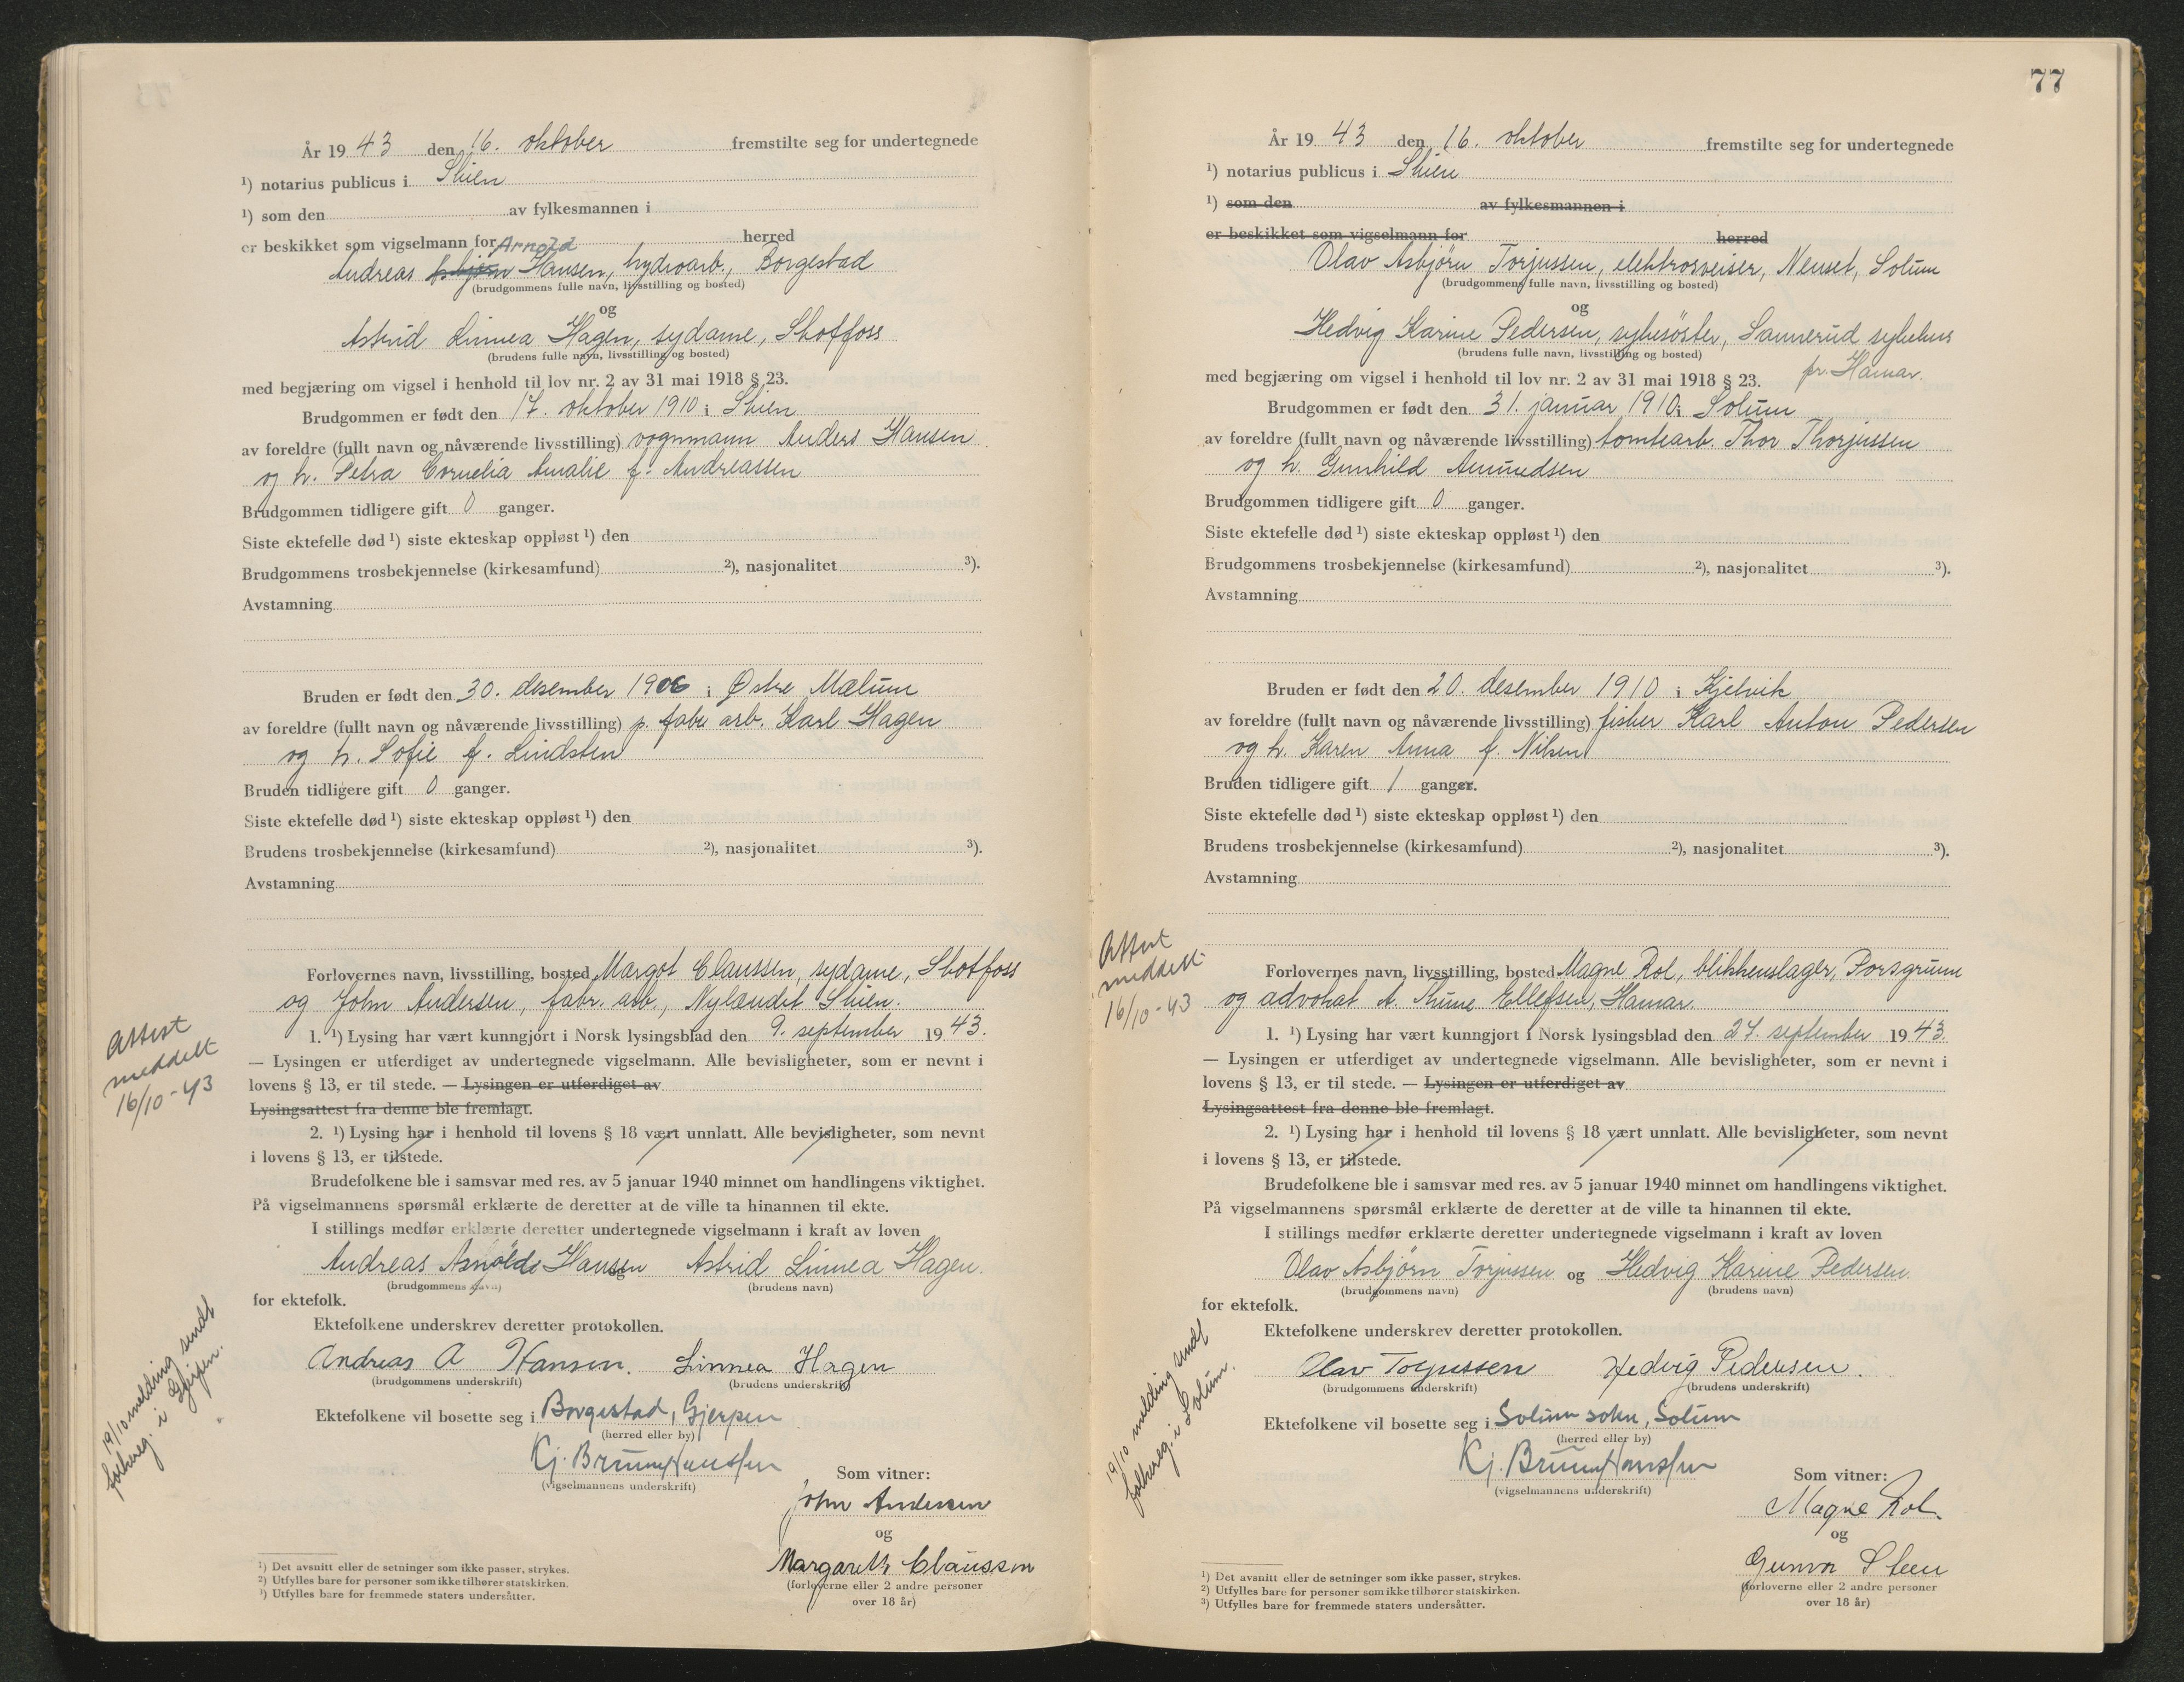 År 19 43 den 16. oktober fremstilte seg for undertegnede
¹) notarius publicus i Skien
¹) som den av fylkesmannen i
er beskikket som vigselmann for herred
Arnold
Andreas Asbjørn Hansen, hydroarb., Borgestad
(brudgommens fulle navn, livsstilling og bosted)
og
Astrid Linnea Hagen, sydame, Skotfoss
(brudens fulle navn, livsstilling og bosted)
med begjæring om vigsel i henhold til lov nr. 2 av 31 mai 1918 § 23.
Brudgommen er født den 17. oktober 1910 i Skien
av foreldre (fullt navn og nåværende livsstilling) vognmann Anders Hansen
og h. Petra Cornelia Amalie f. Andreassen
Brudgommen tidligere gift 0 ganger.
Siste ektefelle død ¹) siste ekteskap oppløst ¹) den
Brudgommens trosbekjennelse (kirkesamfund) ²), nasjonalitet ³).
Avstamning
Bruden er født den 30. desember 1906 i Østre Mælum
av foreldre (fullt navn og nåværende livsstilling) p. fabr arb. Karl Hagen
og h. Sofie f. Lindsten
Bruden tidligere gift 0 ganger.
Siste ektefelle død ¹) siste ekteskap oppløst ¹) den
Brudens trosbekjennelse (kirkesamfund) ²), nasjonalitet ³).
Avstamning
Forlovernes navn, livsstilling, bosted Margot Claussen, sydame, Skotfoss
og John Andersen, fabr. arb., Nylændet Skien.
1. ¹) Lysing har vært kunngjort i Norsk lysingsblad den 9. september 19 43.
— Lysingen er utferdiget av undertegnede vigselmann. Alle bevisligheter, som er nevnt i
lovens § 13, er til stede. — Lysingen er utferdiget av
Lysingsattest fra denne ble fremlagt.
2. ¹) Lysing har i henhold til lovens § 18 vært unnlatt. Alle bevisligheter, som nevnt
i lovens § 13, er tilstede.
Brudefolkene ble i samsvar med res. av 5 januar 1940 minnet om handlingens viktighet.
På vigselmannens spørsmål erklærte de deretter at de ville ta hinannen til ekte.
I stillings medfør erklærte deretter undertegnede vigselmann i kraft av loven
Andreas Arnold Hansen Astrid Linnea Hagen.
(brudgommens navn) (brudens navn)
for ektefolk.
Ektefolkene underskrev deretter protokollen.
Andreas A Hansen. Linnea Hagen
(brudgommens underskrift) (brudens underskrift)
Ektefolkene vil bosette seg i Borgestad, Gjerpen
(herred eller by)
Kj. Bruun Hanssen
(vigselmannens underskrift)
Som vitner:
John Andersen
og
Margareth Claussen
(forloverne eller 2 andre personer
over 18 år)
¹) Det avsnitt eller de setninger som ikke passer, strykes.
²) Utfylles bare for personer som ikke tilhører statskirken.
³) Utfylles bare for fremmede staters undersåtter.
Attest
meddelt
16/10-43
19/10 melding sendt
folkereg. i Gjerpen.
77
År 19 43 den 16. oktober fremstilte seg for undertegnede
¹) notarius publicus i Skien
¹) som den av fylkesmannen i
er beskikket som vigselmann for herred
Olav Asbjørn Torjussen, elektrosveiser, Nenset, Solum
(brudgommens fulle navn, livsstilling og bosted)
og
Hedvig Karine Pedersen, sykesøster, Sannerud sykehus
(brudens fulle navn, livsstilling og bosted)
pr. Hamar.
med begjæring om vigsel i henhold til lov nr. 2 av 31 mai 1918 § 23.
Brudgommen er født den 31. januar 1910 i Solum
av foreldre (fullt navn og nåværende livsstilling) tomtearb. Thor Thorjussen
og h. Gunhild Amundsen
Brudgommen tidligere gift 0 ganger.
Siste ektefelle død ¹) siste ekteskap oppløst ¹) den
Brudgommens trosbekjennelse (kirkesamfund) ²), nasjonalitet ³).
Avstamning
Bruden er født den 20. desember 1910 i Kjelvik
av foreldre (fullt navn og nåværende livsstilling) fisker Karl Anton Pedersen
og h. Karen Anna f. Nilsen
Bruden tidligere gift 1 ganger.
Siste ektefelle død ¹) siste ekteskap oppløst ¹) den
Brudens trosbekjennelse (kirkesamfund) ²), nasjonalitet ³).
Avstamning
Forlovernes navn, livsstilling, bosted Magne Rol, blikkenslager, Porsgrunn
og advokat A. Thune Ellefsen, Hamar.
1. ¹) Lysing har vært kunngjort i Norsk lysingsblad den 27. september 19 43
— Lysingen er utferdiget av undertegnede vigselmann. Alle bevisligheter, som er nevnt i
lovens § 13, er til stede. — Lysingen er utferdiget av
Lysingsattest fra denne ble fremlagt.
2. ¹) Lysing har i henhold til lovens § 18 vært unnlatt. Alle bevisligheter, som nevnt
i lovens § 13, er tilstede.
Brudefolkene ble i samsvar med res. av 5 januar 1940 minnet om handlingens viktighet.
På vigselmannens spørsmål erklærte de deretter at de ville ta hinannen til ekte.
I stillings medfør erklærte deretter undertegnede vigselmann i kraft av loven
Olav Asbjørn Torjussen og Hedvig Karine Pedersen.
(brudgommens navn) (brudens navn)
for ektefolk.
Ektefolkene underskrev deretter protokollen.
Olav Torjussen Hedvig Pedersen.
(brudgommens underskrift) (brudens underskrift)
Ektefolkene vil bosette seg i Solum sokn, Solum
(herred eller by)
Kj. Bruun Hanssen
(vigselmannens underskrift)
Som vitner:
Magne Rol.
og
Gunvor Steen
(forloverne eller 2 andre personer
over 18 år)
¹) Det avsnitt eller de setninger som ikke passer, strykes.
²) Utfylles bare for personer som ikke tilhører statskirken.
³) Utfylles bare for fremmede staters undersåtter.
Attest
meddelt
16/10-43
19/10 melding sendt
folkereg. i Solum.